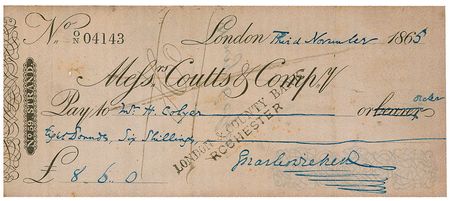 No O/N 04143 London Third November 1865
Messrs Coutts & Compy
Pay to Mr. H. Colyer or bearer order
Eight Pounds, Six Shillings
LONDON & COUNTY BANK
ROCHESTER
£ 8 6 0 Charles Dickens
No 59 STRAND